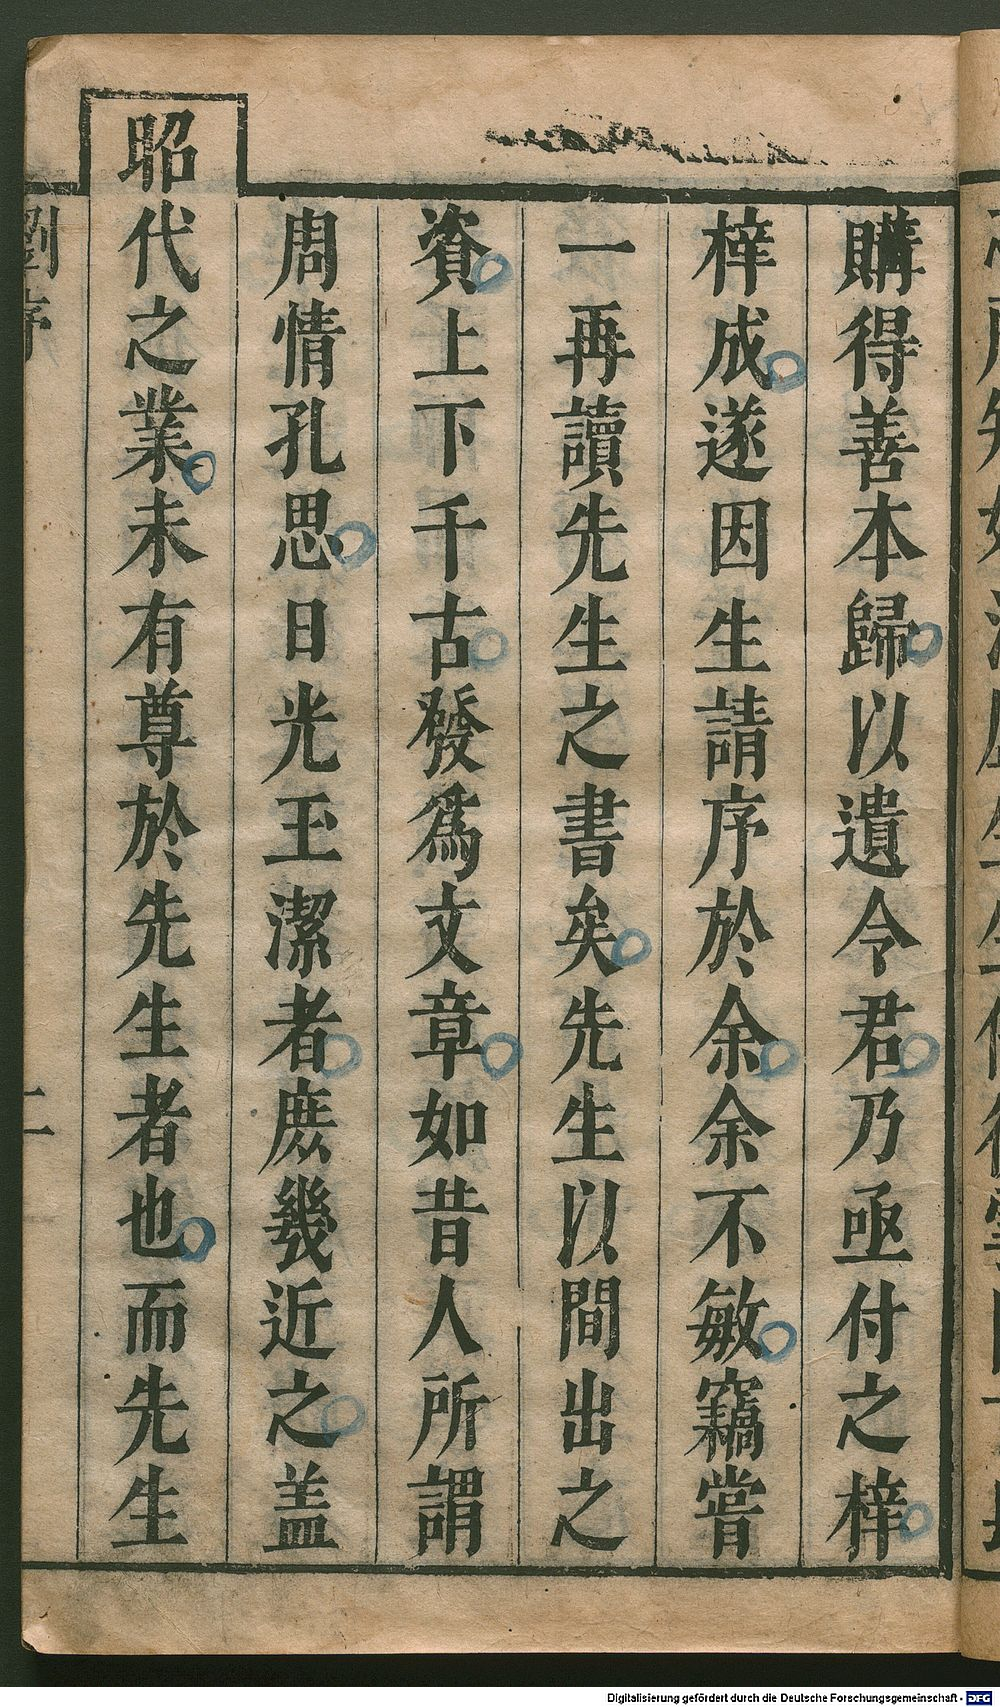 購得善本歸以遺令君乃亟付之梓
梓成遂因生請序於余余不敏竊嘗
一再讀先生之書矣先生以間出之
資上下千古發爲文章如昔人所謂
周情孔思日光玉潔者庶幾近之盖
昭代之業未有尊於先生者也而先生
劉序
二
Digitalisierung gefördert durch die Deutsche Forschungsgemeinschaft - DFG